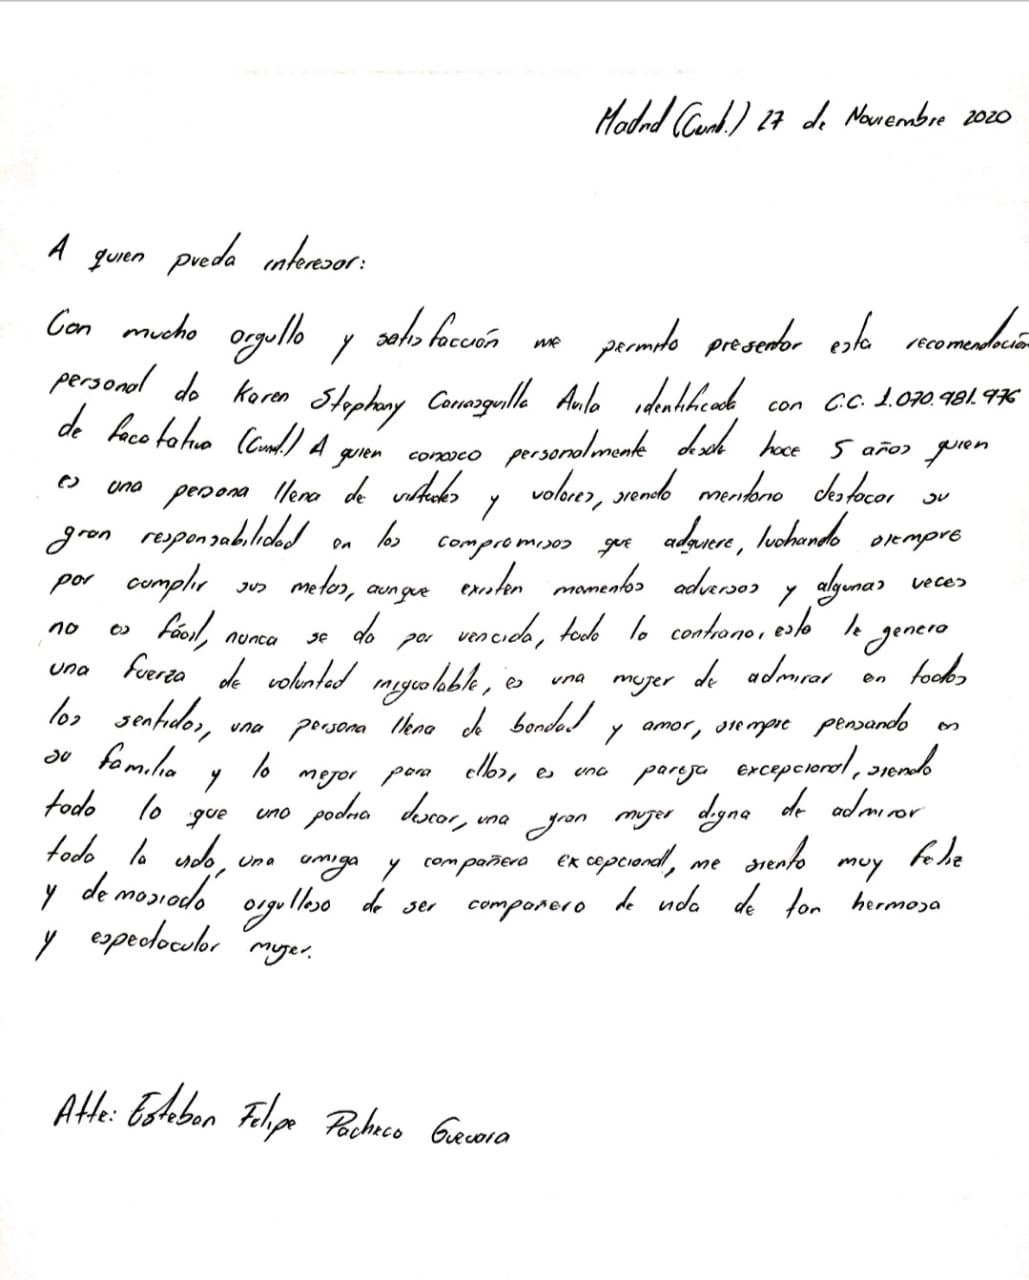 Madrid (Cund.) 27 de Noviembre 2020
A quien pueda interesar:
Con mucho orgullo y satisfacción me permito presentar esta recomendación
personal de Karen Stephany Carrasquilla Avila identificada con C.C. 1.070.981.976
de facatativa (Cund.) A quien conosco personalmente desde hace 5 años quien
es una persona llena de virtudes y valores, siendo meritorio destacar su
gran responsabilidad en los compromisos que adquiere, luchando siempre
por cumplir sus metas, aunque existen momentos adversos y algunas veces
no es fácil, nunca se da por vencida, todo lo contrario, esto le genera
una fuerza de voluntad inigualable, es una mujer de admirar en todos
los sentidos, una persona llena de bondad y amor, siempre pensando en
su familia y lo mejor para ellos, es una pareja excepcional, siendo
todo lo que uno podria desear, una gran mujer digna de admirar
toda la vida, una amiga y compañera excepcional, me siento muy feliz
y demasiado orgulloso de ser compañero de vida de tan hermosa
y espectacular mujer.
Atte: Esteban Felipe Pacheco Guevara